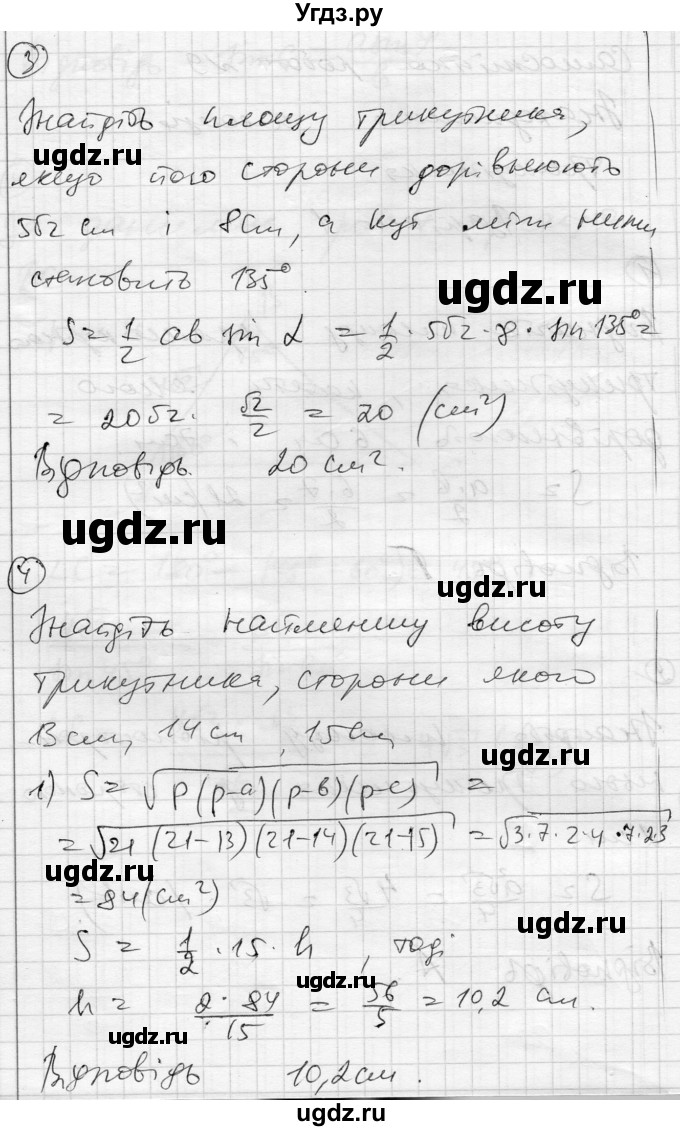 Угдз.ру
3
Знайдіть площу трикутника,
ugdz.ru
якщо його сторони дорівнюють
5√2 см і 8см, а кут між ними
становить 135°.
ugdz.ru
S = 1/2 ab sin α = 1/2 · 5√2 · 8 · sin 135° =
= 20√2 · √2/2 = 20 (см²)
Відповідь. 20 см².
ugdz.ru
ugdz.ru
4
ugdz.ru
Знайдіть найменшу висоту
трикутника, сторони якого
13см, 14см, 15см
ugdz.ru
1) S = √p(p-a)(p-b)(p-c) =
= √21(21-13)(21-14)(21-15) = √3·7·2·4·7·2·3
ugdz.ru
= 84(см²)
ugdz.ru
S = 1/2 · 15 · h, тоді
h = 2·84/15 = 56/5 = 10,2 см.
ugdz.ru
Відповідь 10,2см.
ugdz.ru